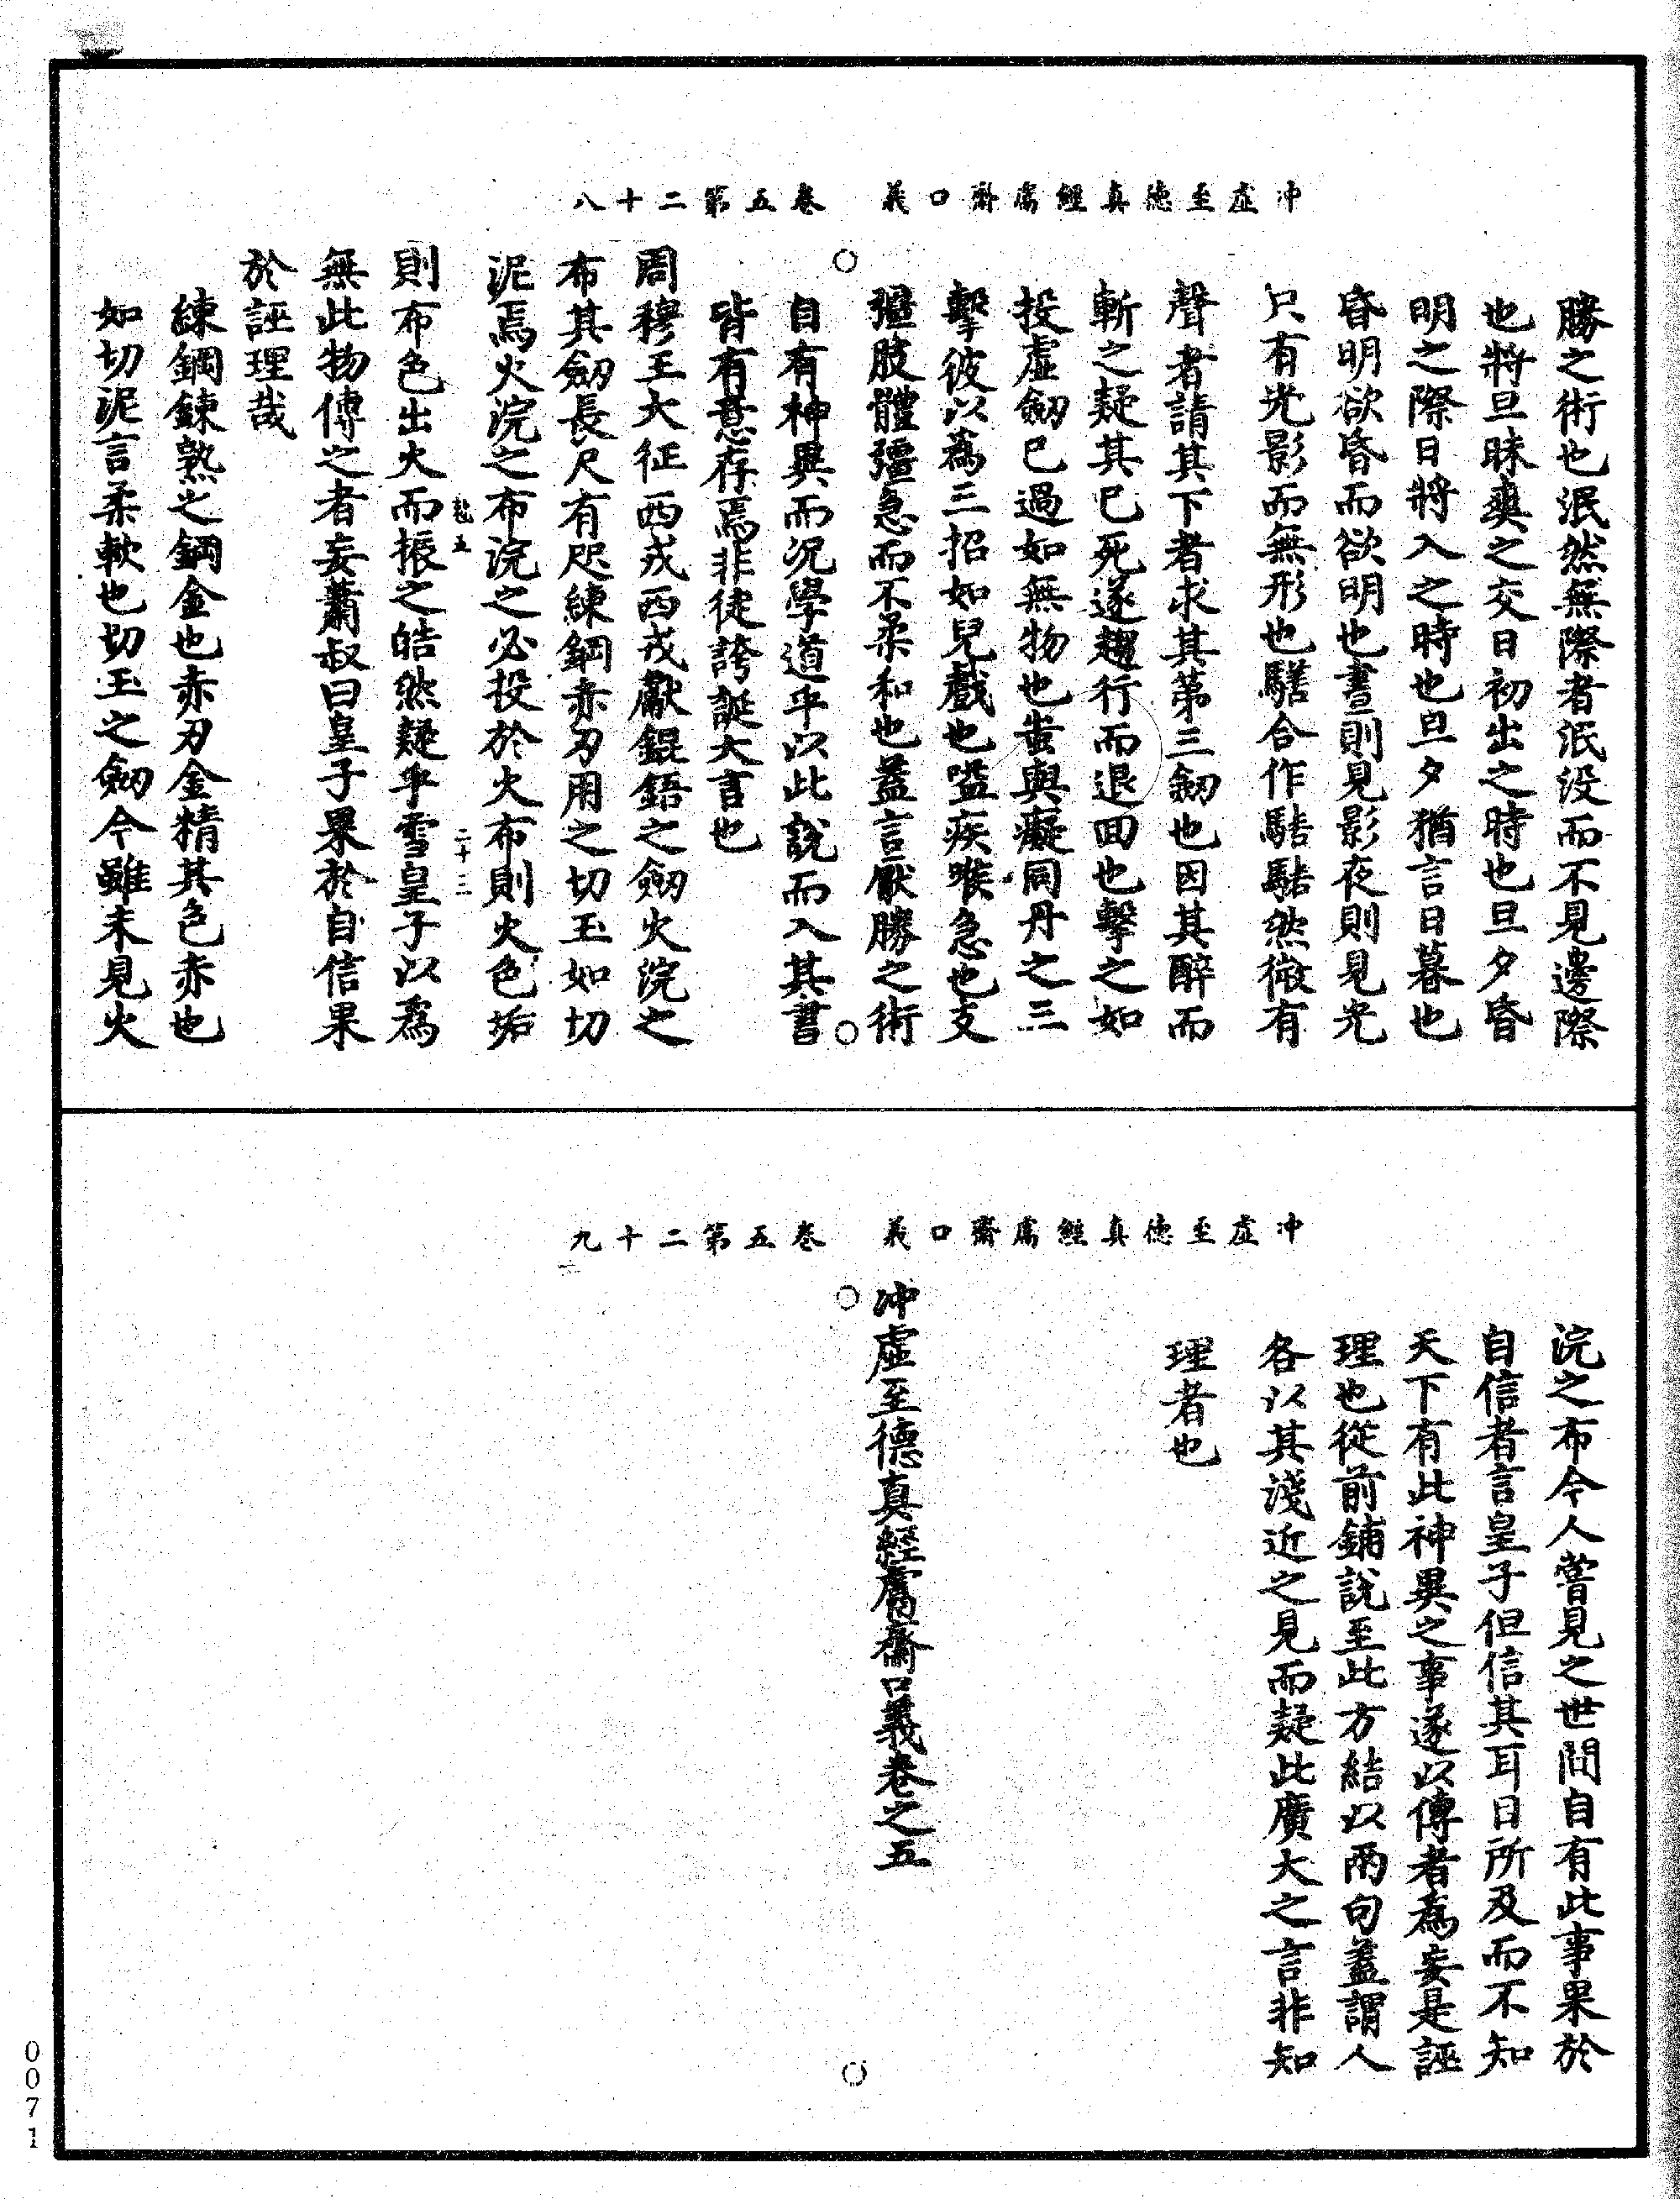 冲虛至德真經鬳齋口義　卷五第二十八
勝之術也泯然無際者泯没而不見邊際
也將旦昧爽之交日初出之時也旦夕昏
明之際日將入之時也旦夕猶言日暮也
昏明欲昏而欲明也晝則見影夜則見光
只有光影而無形也騞合作騞騞然微有
聲者請其下者求其第三劒也因其醉而
斬之疑其已死遂趨行而退回也擊之如
投虛劒已過如無物也蚩與癡同丹之三
擊彼以為三招如兒戲也嗌疾喉急也支
彊肢體彊急而不柔和也蓋言厭勝之術
自有神異而况學道乎以此說而入其書
皆有意存焉非徒誇誕大言也
周穆王大征西戎西戎獻錕鋙之劒火浣之
布其劒長尺有咫練鋼赤刃用之切玉如切
泥焉火浣之布浣之必投於火布則火色垢
則布色出火而振之皓然疑乎雪皇子以為
無此物傳之者妄蕭叔曰皇子果於自信果
於誣理哉
練鋼鍊熟之鋼金也赤刃金精其色赤也
如切泥言柔軟也切玉之劒今雖未見火
二十三
冲虛至德真經鬳齋口義　卷五第二十九
浣之布今人嘗見之世間自有此事果於
自信者言皇子但信其耳目所及而不知
天下有此神異之事遂以傳者為妄是誣
理也從前鋪說至此方結以兩句蓋謂人
各以其淺近之見而疑此廣大之言非知
理者也
冲虛至德真經鬳齋口義卷之五
0071